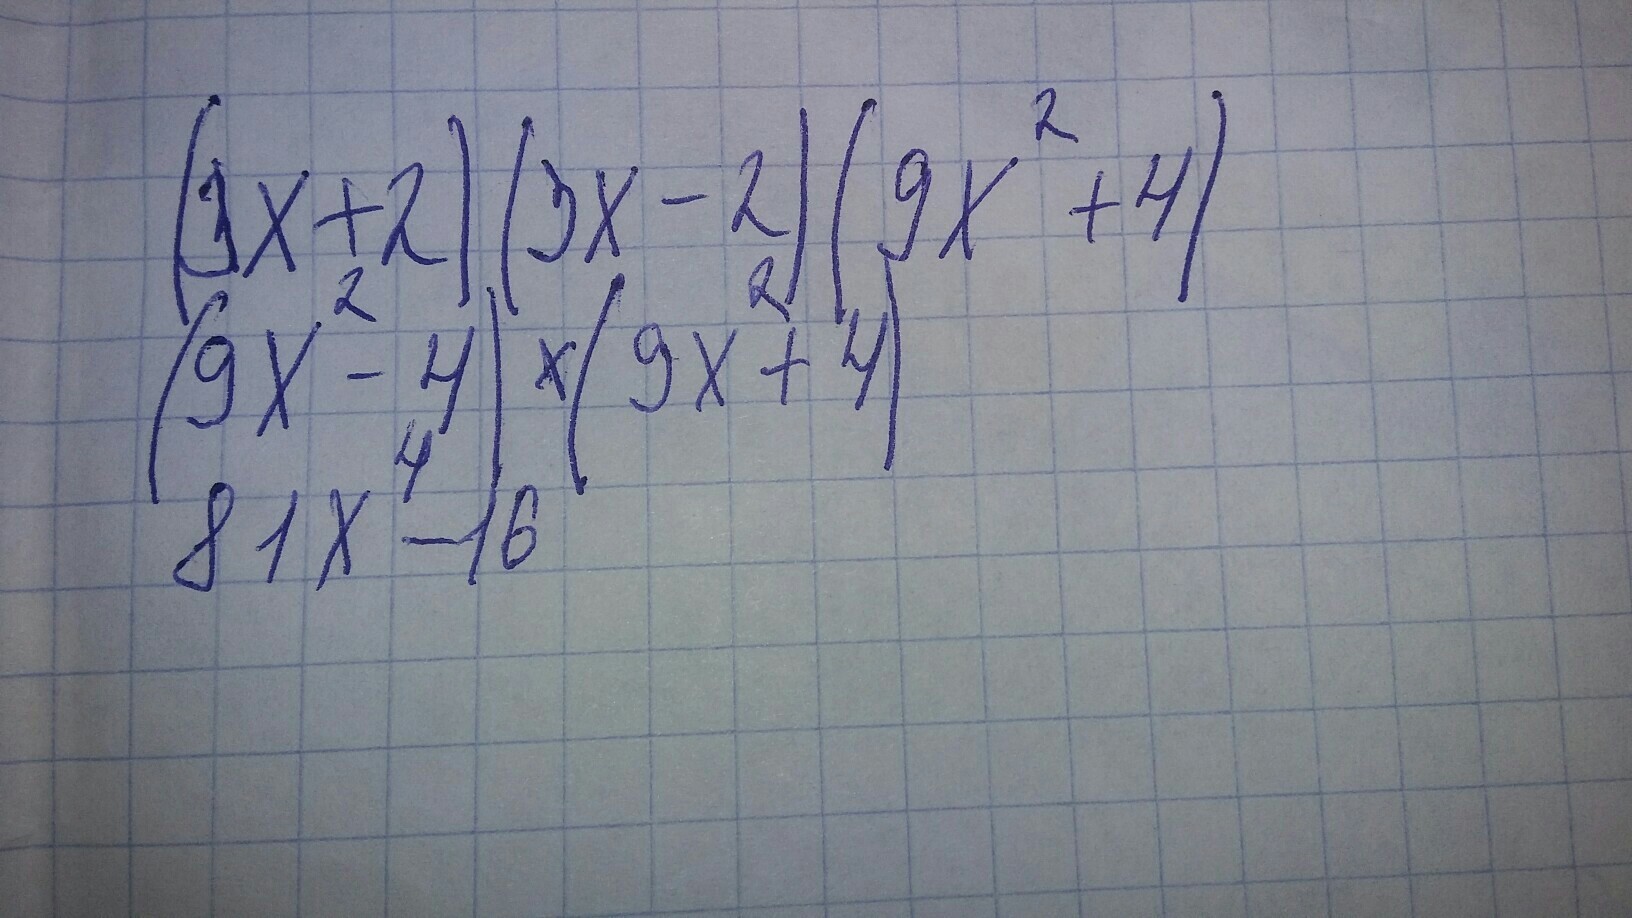 (3x+2)(3x-2)(9x²+4)
(9x²-4)×(9x²+4)
81x⁴-16